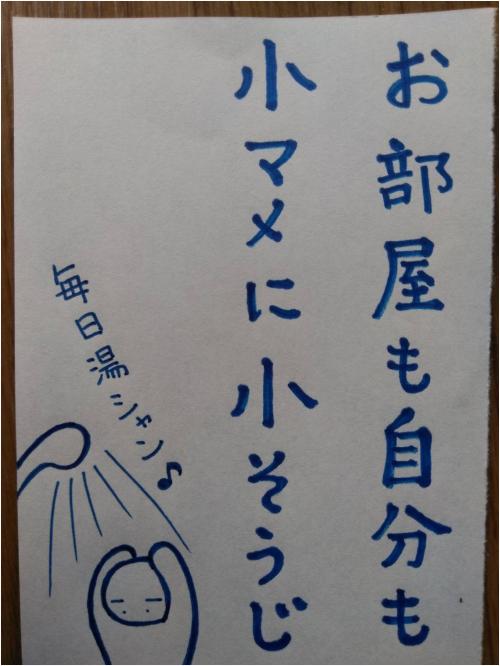 お部屋も自分も
小マメに小そうじ
毎日湯シャン♪